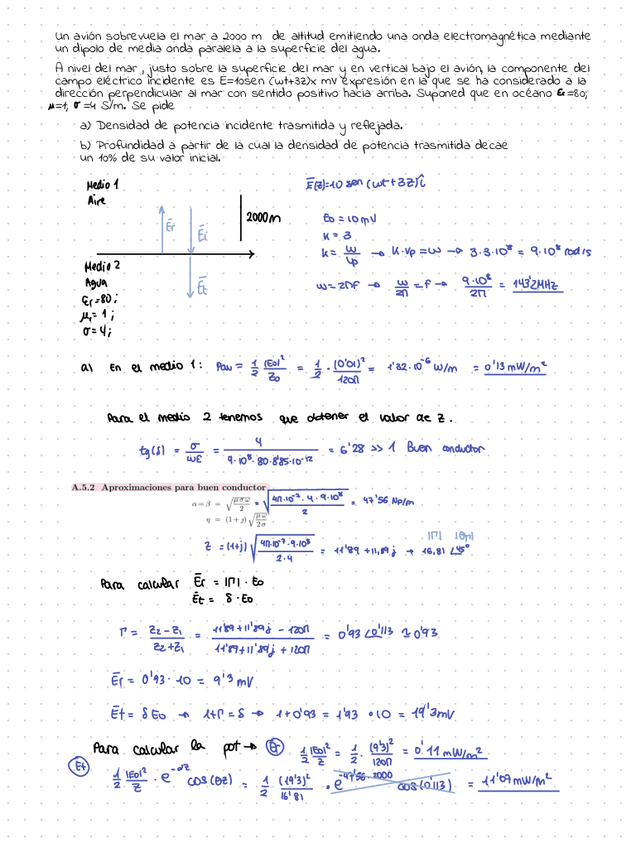 Un avión sobrevuela el mar a 2000 m de altitud emitiendo una onda electromagnética mediante
un dipolo de media onda paralela a la superficie del agua.
A nivel del mar, justo sobre la superficie del mar y en vertical bajo el avión, la componente del
campo eléctrico incidente es E=10sen (wt+3z)x mV expresión en la que se ha considerado a la
dirección perpendicular al mar con sentido positivo hacia arriba. Suponed que en océano εr=80;
μ=1; σ=4 S/m. Se pide
a) Densidad de potencia incidente trasmitida y reflejada.
b) Profundidad a partir de la cual la densidad de potencia trasmitida decae
un 10% de su valor inicial.
Medio 1
Aire
Ēr Ēi
2000m
Medio 2
Agua
εr=80;
μr=1;
σ=4;
Ēt
Ē(z)=10 sen (wt+3z)î
Eo=10mV
K=3
K= w/vp → K·vp=w → 3·3·10⁸ = 9·10⁸ rad/s
w=2πf → w/2π = f → 9·10⁸/2π = 143'2MHz
a) En el medio 1: Pav = 1/2 |Eo|²/Zo = 1/2 · (0'01)²/120π = 1'32·10⁻⁶ W/m = 0'13 mW/m²
Para el medio 2 tenemos que obtener el valor de Z.
tg(δ) = σ/wε = 4/9·10⁸·80·8'85·10⁻¹² = 6'28 >> 1 Buen conductor
A.5.2 Aproximaciones para buen conductor
α = β = √(μσω/2) = √(4π·10⁻⁷·4·9·10⁸/2) = 47'56 Np/m
η = (1+j)√(μω/2σ)
Z = (1+j)√(4π·10⁻⁷·9·10⁸/2·4) = 11'89 + 11,89j → 16,81 ∠45°
Para calcular Ēr = |Γ| · Eo
Ēt = δ · Eo
Γ = Z2-Z1/Z2+Z1 = 11'89+11'89j - 120π/11'89+11'89j + 120π = 0'93 ∠0'113 ≃ 0'93
Ēr = 0'93 · 10 = 9'3 mV
Ēt = δ Eo → 1+Γ = δ → 1+0'93 = 1'93 · 10 = 19'3mV
Para calcular la pot → Er 1/2 |Eo|²/Z = 1/2 · (9'3)²/120π = 0'11 mW/m²
Et 1/2 |Eo|²/Z · e^-αz cos(θz) = 1/2 (19'3)²/16'81 · e^-47'56·2000 cos(0'113) = 11'09 mW/m²